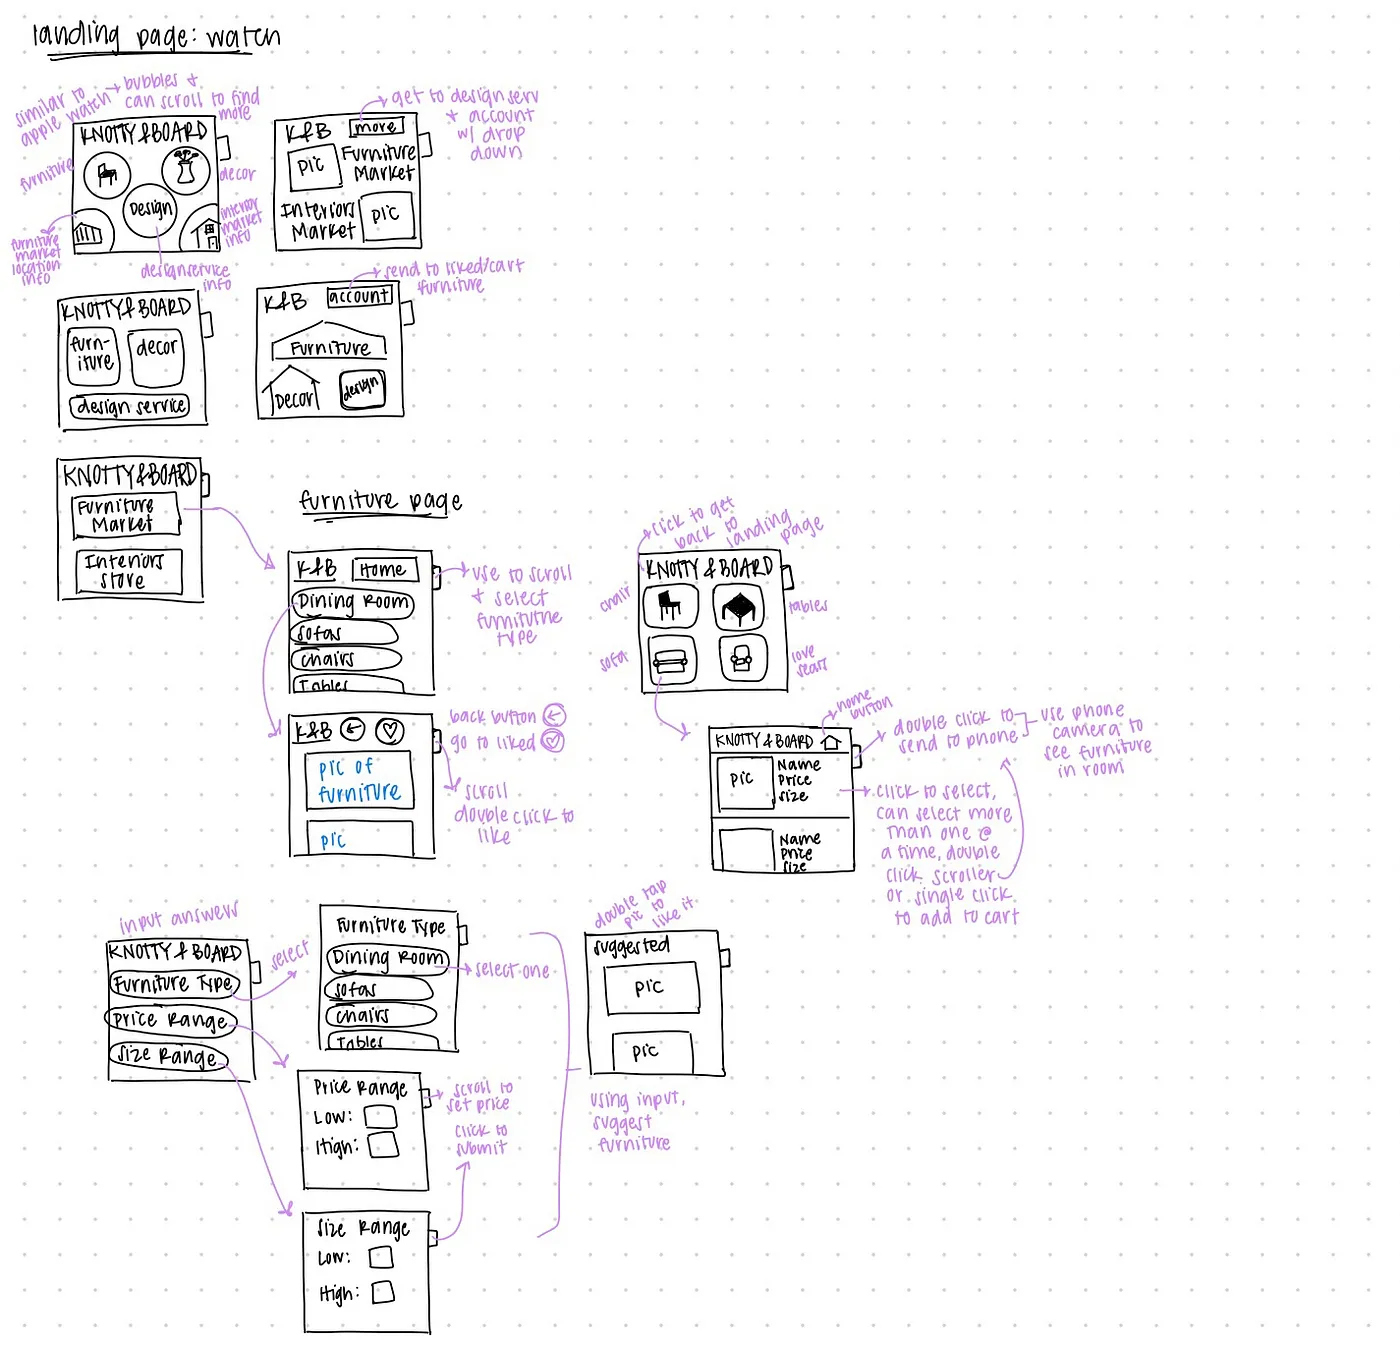 landing page: watch
similar to
apple watch
bubbles &
can scroll to find
more
KNOTTY&BOARD
furniture
decor
Design
furniture
market
location
info
interior
market
info
design service
info
get to design serv
& account
w/ drop
down
K&B
more
pic
Furniture
Market
Interiors
Market
pic
KNOTTY&BOARD
furn-
iture
decor
design service
send to liked/cart
furniture
K&B
account
Furniture
Decor
design
KNOTTY&BOARD
Furniture
Market
Interiors
Store
furniture page
K&B
Home
Dining Room
sofas
chairs
Tables
use to scroll
& select
furniturne
type
K&B
back button
go to liked
pic of
furniture
pic
scroll
double click to
like
click to get
back to
landing
page
KNOTTY & BOARD
chair
tables
sofa
love
seats
home
button
KNOTTY & BOARD
pic
Name
Price
Size
Name
Price
Size
double click to
send to phone
use phone
camera to
see furniture
in room
click to select,
can select more
than one @
a time, double
click scroller
or single click
to add to cart
input answers
KNOTTY & BOARD
Furniture Type
Price Range
Size Range
select
Furniture Type
Dining Room
sofas
chairs
Tables
select one
Price Range
Low:
High:
scroll to
set price
click to
submit
Size Range
Low:
High:
double tap
pic to
like it
suggested
pic
pic
using input,
suggest
furniture